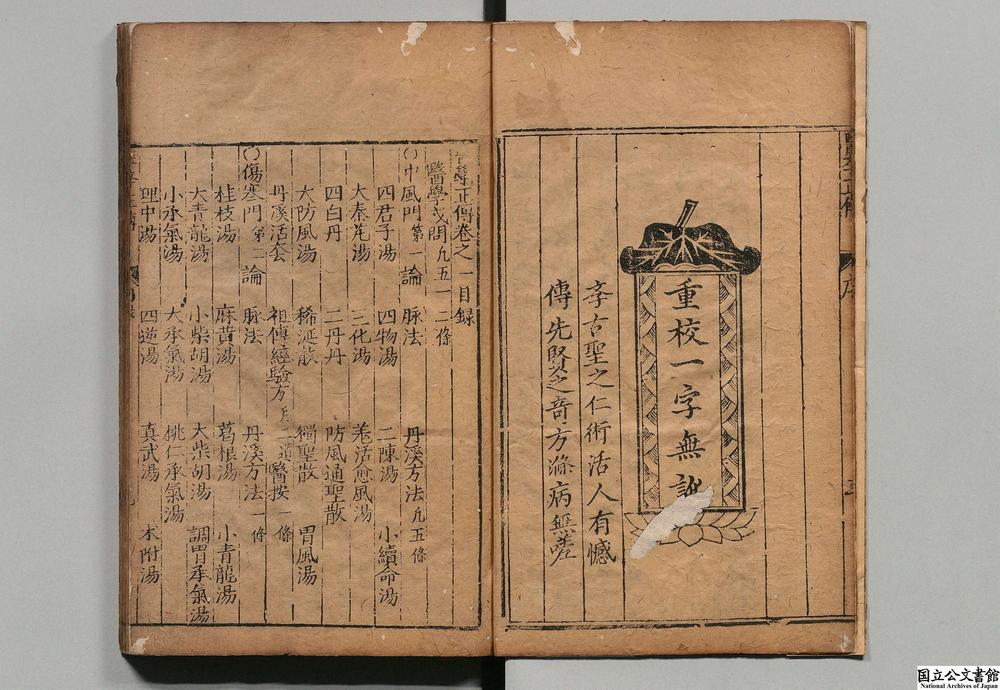 重校一字無訛
李古聖之仁術活人有憾
傳先賢之奇方滌病無嗟
醫學正傳卷之一目錄
醫學或問凡五一二條
○中風門第一論 脉法 丹溪方法凡五條
四君子湯 四物湯 二陳湯 小續命湯
大秦芃湯 三化湯 羗活愈風湯
四白丹 二丹丹 防風通聖散
大防風湯 稀涎散 獨聖散 胃風湯
丹溪活套 祖傳經驗方 醫按 條
○傷寒門第二論 脉法 丹溪方法一條
桂枝湯 麻黃湯 葛根湯 小青龍湯
大青龍湯 小柴胡湯 大柴胡湯 調胃承氣湯
小承氣湯 大承氣湯 桃仁承氣湯
理中湯 四逆湯 真武湯 术附湯
国立公文書館
National Archives of Japan